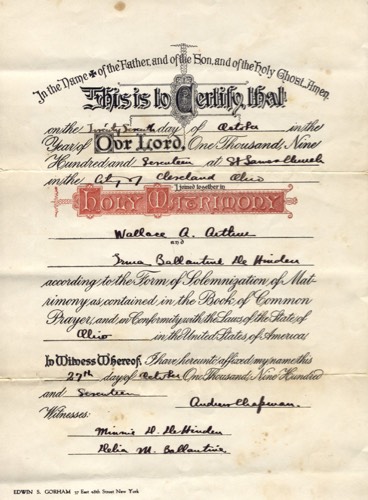 In the Name ✠ of the Father, and of the Son, and of the Holy Ghost. Amen.
This is to Certify, that
on the day of October in the
Year of Our Lord, One Thousand, Nine
Hundred and Seventeen at Church
in the City of Cleveland Ohio
I joined together in
Holy Matrimony
Wallace A. Arthur
and
Irma Ballantine De Hinden
according to the Form of Solemnization of Mat-
rimony, as contained, in the Book of Common
Prayer, and in Conformity with the Laws of the State of
Ohio in the United States of America,
In Witness Whereof, I have hereunto affixed, my name this
27th day of October One Thousand, Nine Hundred
and Seventeen
Andrew Chapman.
Witnesses:
Minnie D. DeHinden
Delia M. Ballantine
EDWIN S. GORHAM 37 East 28th Street New York